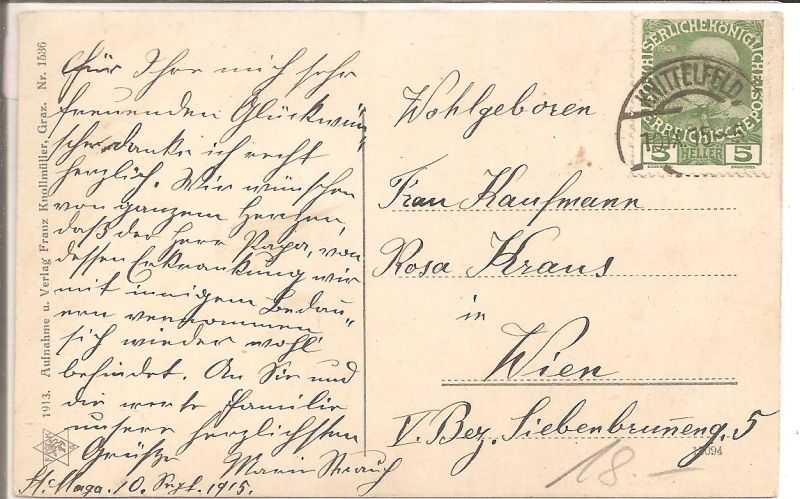 Für Ihre mich sehr
freuenden Glückwün„
sche danke ich recht
herzlich. Wir wünschen
von ganzem Herzen,
daß der Herr Papa, von
dessen Erkrankung wir
mit innigem Bedau„
ern vernommen
sich wieder wohl
befindet. An Sie und
die werte Familie
unsere herzlichsten
Grüße
Marie Strauch
10. Sept. 1915.
Wohlgeboren
Frau Kaufmann
Rosa Kraus
in
Wien
V. Bez. Siebenbrunneng. 5
18.—
13094
1913. Aufnahme u. Verlag Franz Knollmüller, Graz. Nr. 1536
KAISERLICHEKÖNIGLICHE
ÖSTERREICHISCHEPOST
1908
5 HELLER 5
KNITTELFELD